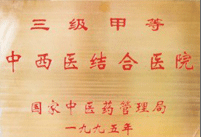 三级甲等
中西医结合医院
国家中医药管理局
一九九五年